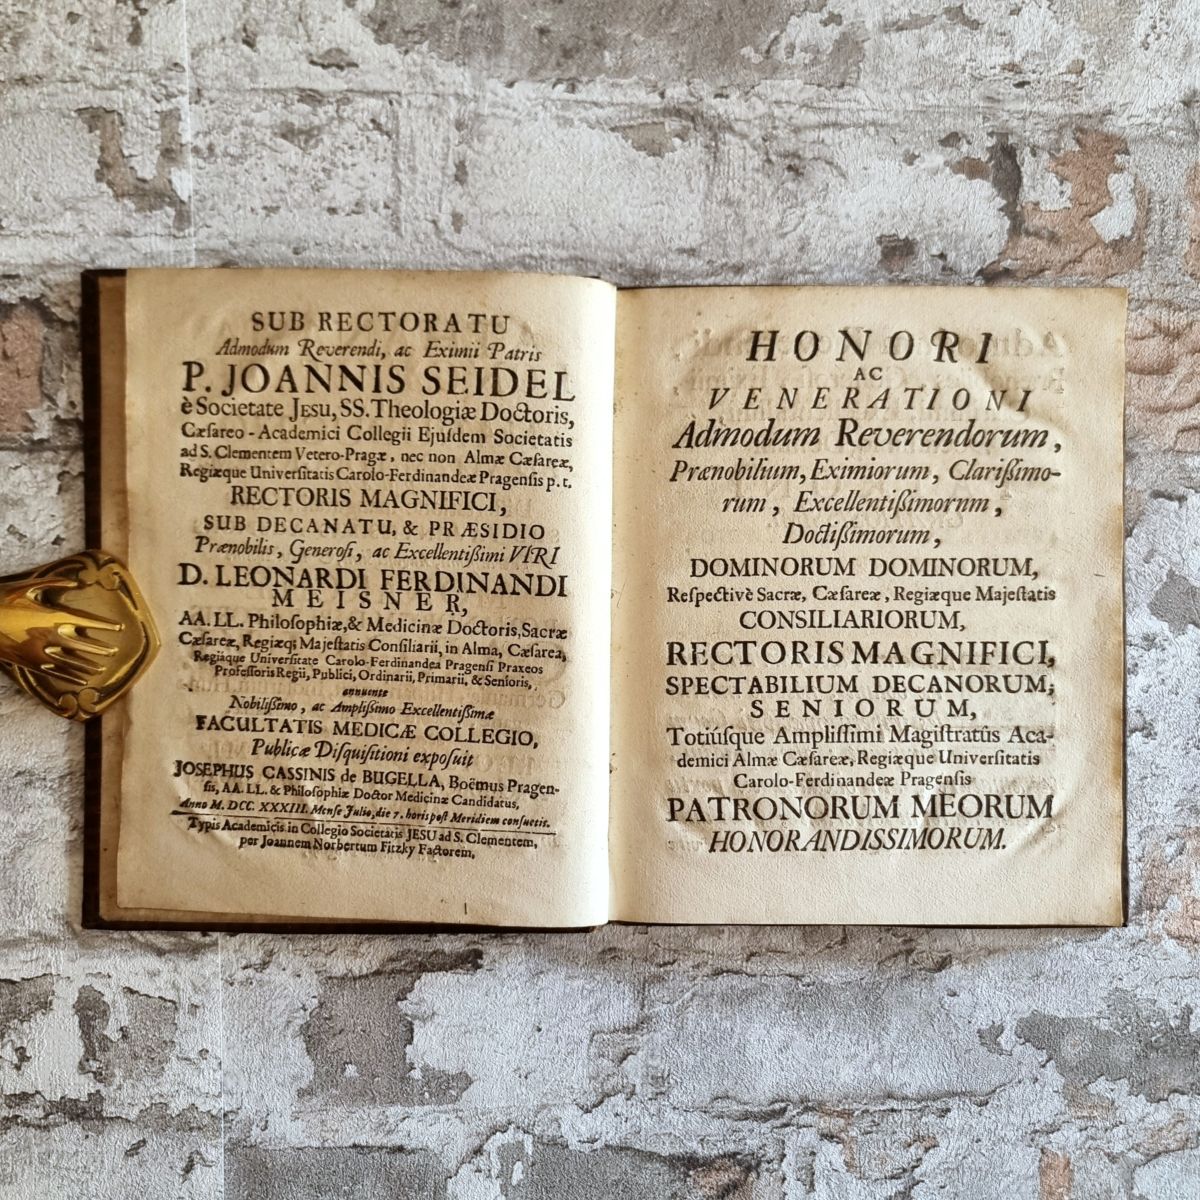 SUB RECTORATU
Admodum Reverendi, ac Eximii Patris
P. JOANNIS SEIDEL
è Societate JESU, SS. Theologiæ Doctoris,
Cæſareo - Academici Collegii Ejuſdem Societatis
ad S. Clementem Vetero-Pragæ, nec non Almæ Cæſareæ,
Regiæque Univerſitatis Carolo-Ferdinandeæ Pragenſis p. t.
RECTORIS MAGNIFICI,
SUB DECANATU, & PRÆSIDIO
Prænobilis, Generoſi, ac Excellentiſſimi VIRI
D. LEONARDI FERDINANDI
MEISNER,
AA. LL. Philoſophiæ, & Medicinæ Doctoris, Sacræ
Cæſareæ, Regiæq; Majeſtatis Conſiliarii, in Alma, Cæſarea,
Regiáque Univerſitate Carolo-Ferdinandea Pragenſi Praxeos
Profeſſoris Regii, Publici, Ordinarii, Primarii, & Senioris,
annuente
Nobiliſſimo, ac Ampliſſimo Excellentiſſimæ
FACULTATIS MEDICÆ COLLEGIO,
Publicæ Diſquiſitioni expoſuit
JOSEPHUS CASSINIS de BUGELLA, Boëmus Pragen-
ſis, AA. LL. & Philoſophiæ Doctor Medicinæ Candidatus,
Anno M. DCC. XXXIII. Menſe Julio, die 7. horis poſt Meridiem conſuetis.
Typis Academicis in Collegio Societatis JESU ad S. Clementem,
per Joannem Norbertum Fitzky Factorem,
HONORI
AC
VENERATIONI
Admodum Reverendorum,
Prænobilium, Eximiorum, Clarißimo-
rum, Excellentißimornm,
Doctißimorum,
DOMINORUM DOMINORUM,
Reſpectivè Sacræ, Cæſareæ, Regiæque Majeſtatis
CONSILIARIORUM,
RECTORIS MAGNIFICI,
SPECTABILIUM DECANORUM,
SENIORUM,
Totiúſque Ampliſſimi Magiſtratûs Aca-
demici Almæ Cæſareæ, Regiæque Univerſitatis
Carolo-Ferdinandeæ Pragenſis
PATRONORUM MEORUM
HONORANDISSIMORUM.